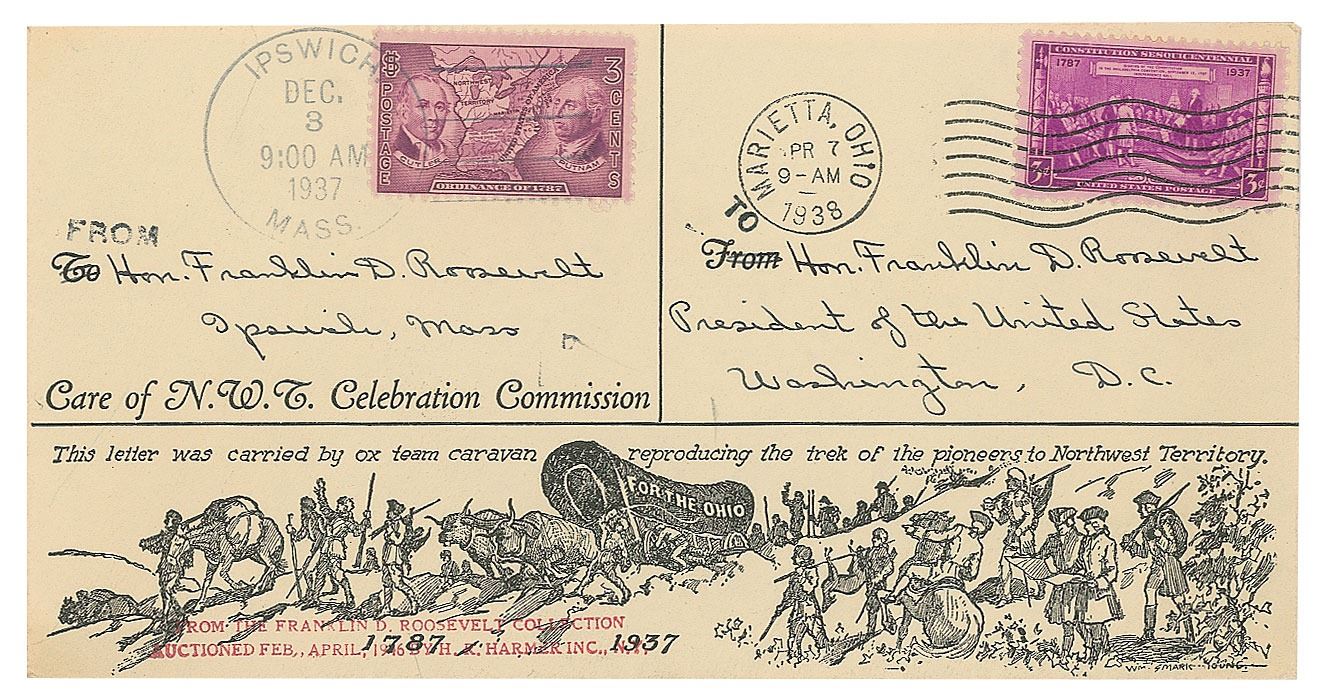 IPSWICH
DEC.
3
9:00 AM
1937
MASS.
$ POSTAGE
3 CENTS
NORTHWEST
TERRITORY
UNITED STATES OF AMERICA
CUTLER
PUTNAM
ORDINANCE OF 1787
FROM
To Hon. Franklin D. Roosevelt
Ipswich, Mass
Care of N.W.T. Celebration Commission
MARIETTA, OHIO
APR 7
9-AM
1938
CONSTITUTION SESQUICENTENNIAL
1787 1937
3¢ UNITED STATES POSTAGE 3¢
TO
From Hon. Franklin D. Roosevelt
President of the United States
Washington, D.C.
This letter was carried by ox team caravan reproducing the trek of the pioneers to Northwest Territory.
FOR THE OHIO
FROM THE FRANKLIN D. ROOSEVELT COLLECTION
AUCTIONED FEB., APRIL, 1946 BY H. R. HARMER INC., N.Y.
1787 1937
WM. SMARK YOUNG